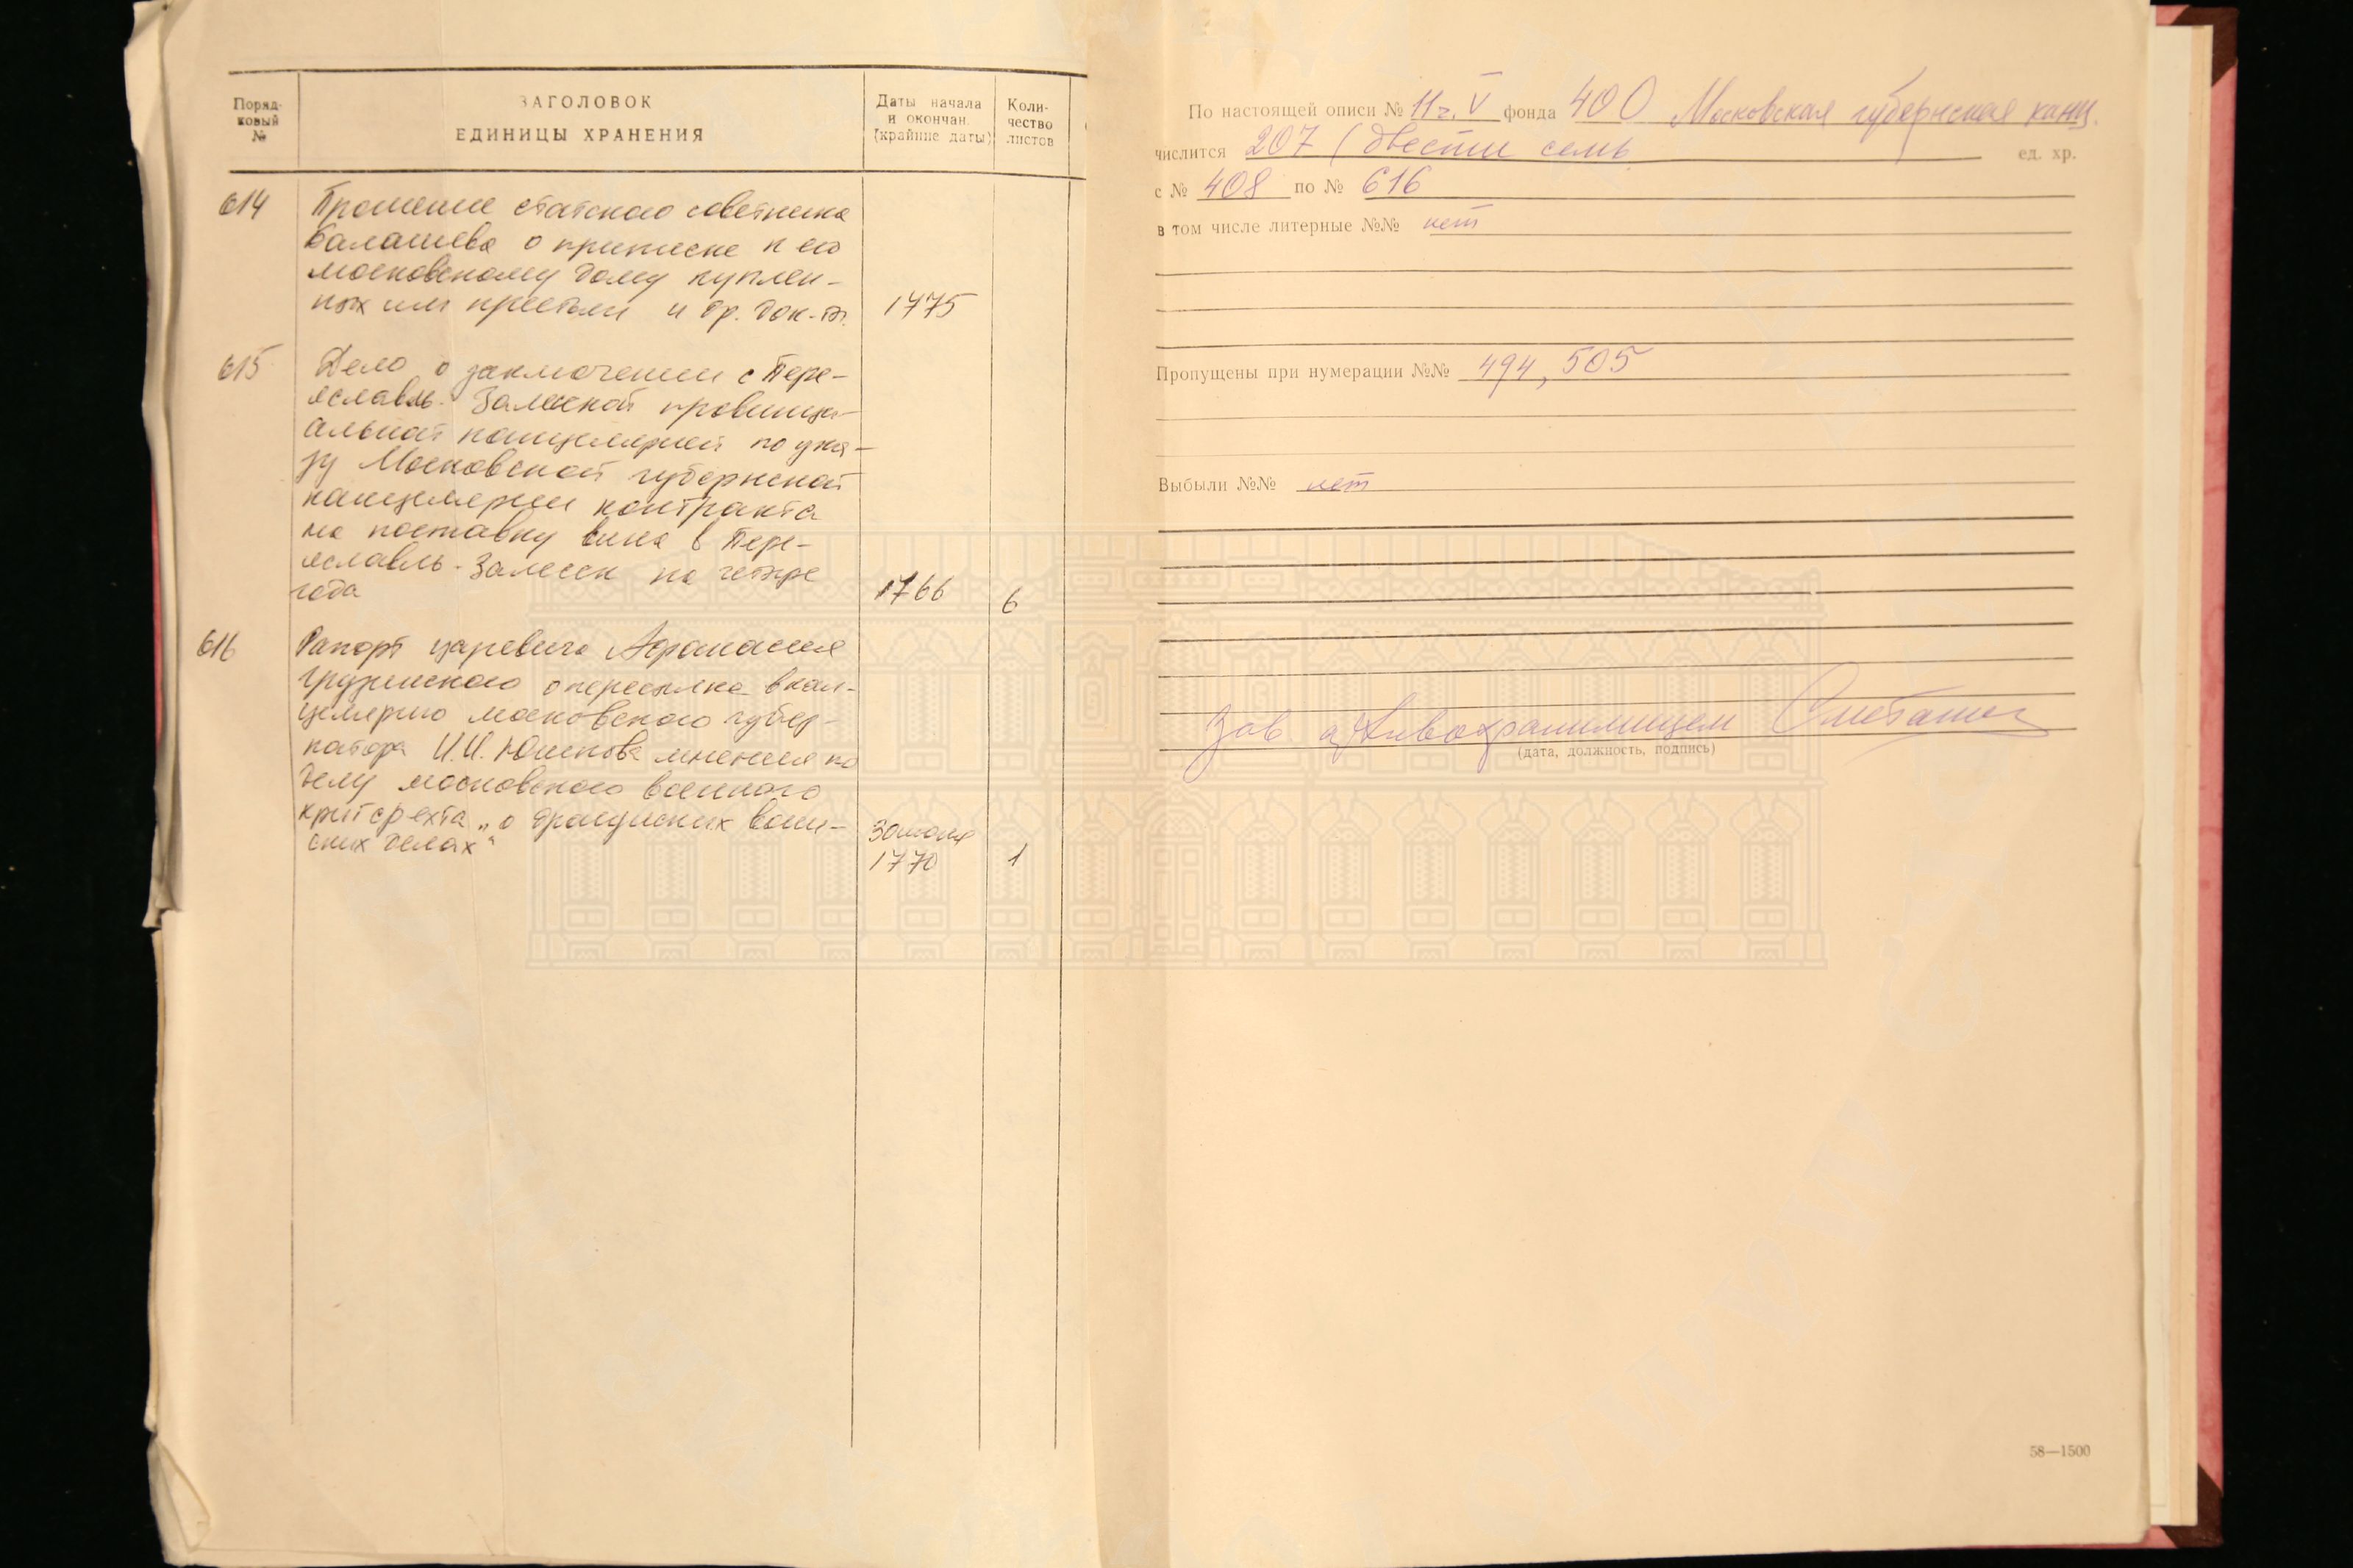 Поряд-
ковый
№
ЗАГОЛОВОК
ЕДИНИЦЫ ХРАНЕНИЯ
Даты начала
и окончан.
(крайние даты)
Коли-
чество
листов
614
Прошение статского советника
Балашева о приписке к его
московскому дому куплен-
ных им крестьян и др. док-ты.
1775
615
Дело о заключении с Пере-
яславль-Залеской провинци-
альной канцелярией по ука-
зу Московской губернской
канцелярии контракта
на поставку вина в Пере-
яславль-Залесск на четыре
года
1766
6
616
Рапорт царевича Афанасия
Грузинского о пересылке в кан-
целярию московского губер-
натора И.И. Юшкова мнения по
делу московского военного
кригсрехта „о французских воин-
ских делах"
30 июля
1770
1
По настоящей описи № 11 ч. V фонда 400 Московская губернская канц.
числится 207 (двести семь ед. хр.
с № 408 по № 616
в том числе литерные №№ нет
Пропущены при нумерации №№ 494, 505
Выбыли №№ нет
Зав архивохранилищем
(дата, должность, подпись)
58—1500